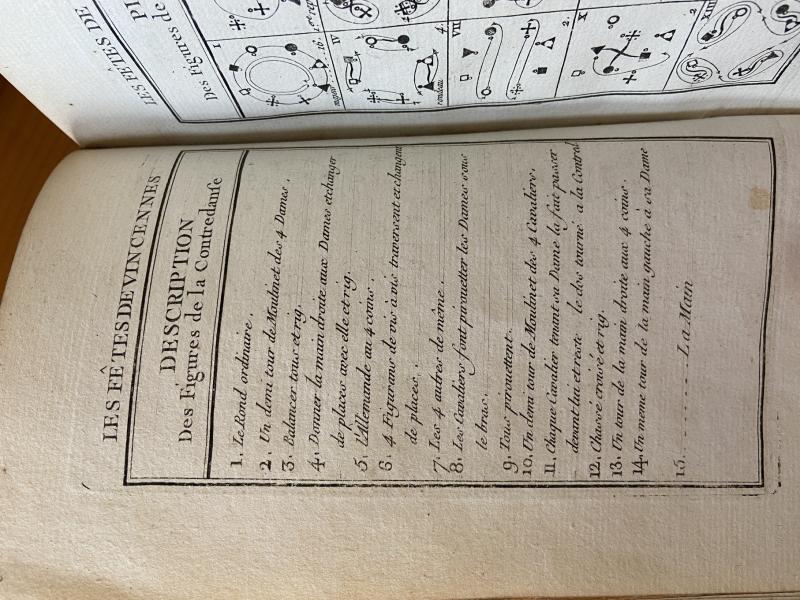 LES FÊTES DE VINCENNES
DESCRIPTION
Des Figures de la Contredanse
1. Le Rond ordinaire.
2. Un demi tour de Moulinet des 4 Dames.
3. Balancer tous et rig.
4. Donner la main droite aux Dames et changer
de places avec elle et rig.
5. l'Allemande au 4 coins.
6. 4 Figurans de vis à vis traversent et changent
de places.
7. Les 4 autres de même.
8. Les Cavaliers font pirouetter les Dames sous
le bras.
9. Tous pirouettent.
10. Un demi tour de Moulinet des 4 Cavaliers.
11. Chaque Cavalier tenant sa Dame la fait passer
devant lui et reste le dos tourné a la Contred
12. Chassé croisé et rig.
13. Un tour de la main droite aux 4 coins.
14. Un meme tour de la main gauche à sa Dame
15. ........ La Main
LES FÊTES DE
PI
Des Figures de
I
IV
VII
X
XIII
rondeau
4.
2.
2